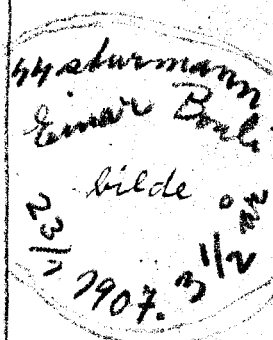 SS sturmann
Einar
bilde
1907. 3 1/2 år